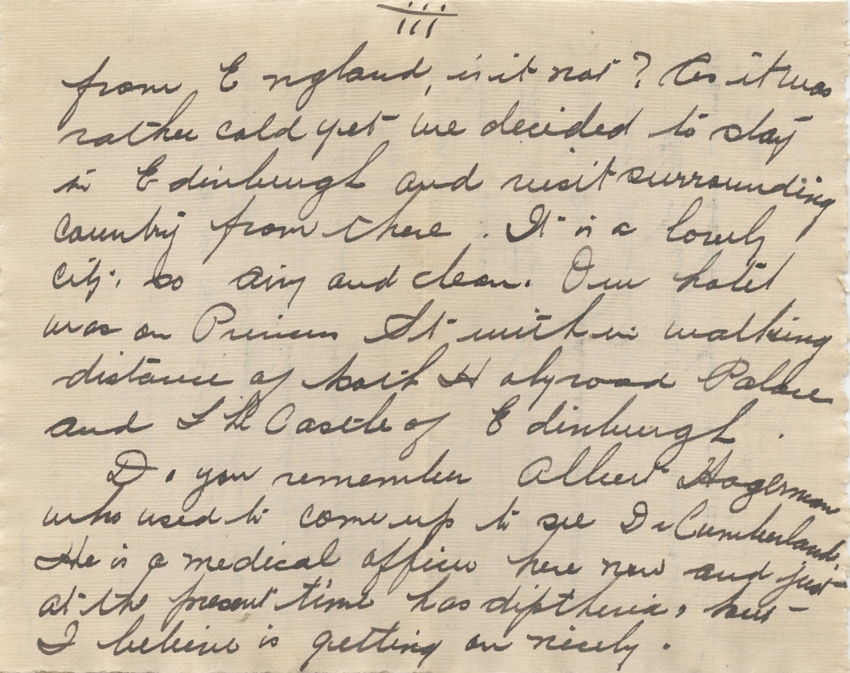 iii
from England, is it not? As it was
rather cold yet we decided to stay
in Edinburgh and visit surrounding
country from there. It is a lovely
city, so airy and clean. Our hotel
was on Princes St within walking
distance of both Holyrood Palace
and The Castle of Edinburgh.
Do you remember Albert Hagerman
who used to come up to see Dr Cumberland.
He is a medical officer here now and just
at the present time has diptheria, but
I believe is getting on nicely.